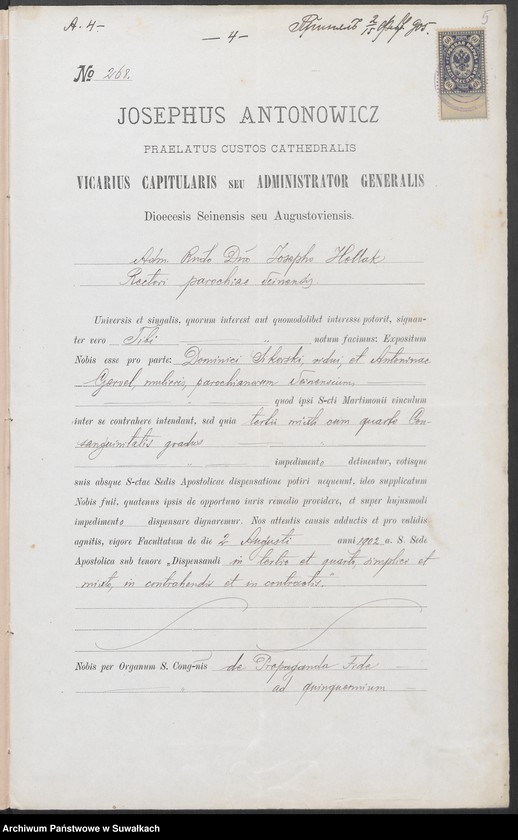 A. 4-
— 4 —
5
№ 268.
JOSEPHUS ANTONOWICZ
PRAELATUS CUSTOS CATHEDRALIS
VICARIUS CAPITULARIS SEU ADMINISTRATOR GENERALIS
Dioecesis Seinensis seu Augustoviensis.
Adm. Rndo Dno Josepho Hollak
Rectori parochiae Seinensis.
Universis et singulis, quorum interest aut quomodolibet interesse poterit, signan-
ter vero Tibi " notum facimus: Expositum
Nobis esse pro parte: Dominici Sikorski, vidui, et Antoninae
mulieris, parochianorum Seinensium,
quod ipsi S-cti Martimonii vinculum
inter se contrahere intendant, sed quia tertio mixto cum quarto Con-
sanguinitatis gradus
impedimento detinentur, votisque
suis absque S-ctae Sedis Apostolicae dispensatione potiri nequeunt, ideo supplicatum
Nobis fuit, quatenus ipsis de opportuno iuris remedio providere, et super hujusmodi
impedimento dispensare dignaremur. Nos attentis causis adductis et pro validis
agnitis, vigore Facultatum de die 2 Augusti anni 1902 a. S. Sede
Apostolica sub tenore „Dispensandi in tertio et quarto, simplici et
mixto, in contrahendis et in contractis."
Nobis per Organum S. Cong-nis de Propaganda Fide
ad quinquennium
Archiwum Państwowe w Suwałkach